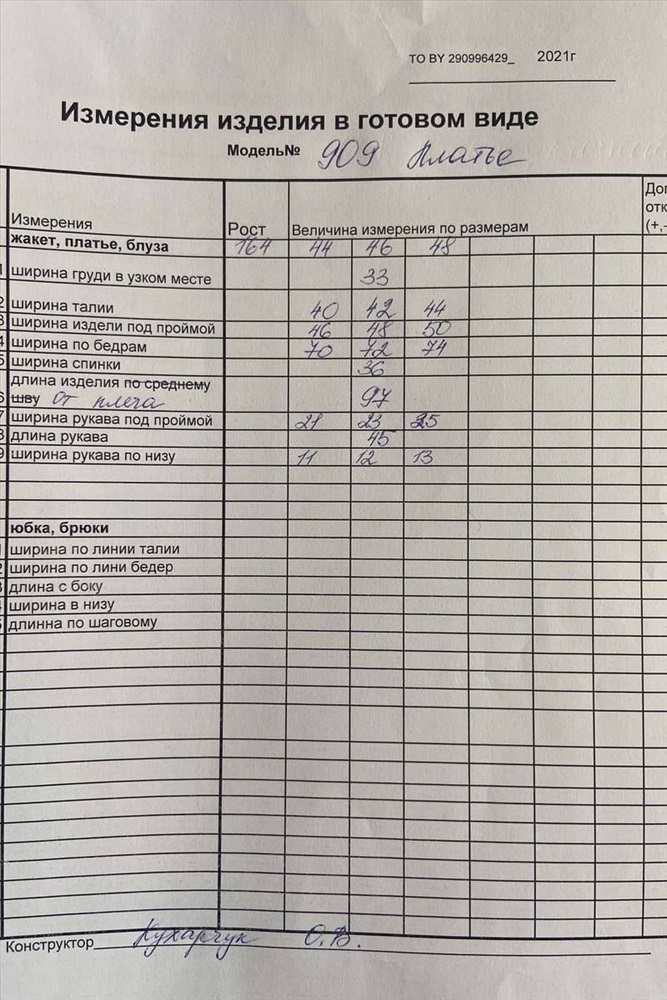 ТО BY 290996429_ 2021г
Измерения изделия в готовом виде
Модель№ 909 Платье
Измерения Рост Величина измерения по размерам
жакет, платье, блуза 164 44 46 48
ширина груди в узком месте 33
ширина талии 40 42 44
ширина издели под проймой 46 48 50
ширина по бедрам 70 72 74
ширина спинки 36
длина изделия по среднему
шву от плеча 97
ширина рукава под проймой 21 23 25
длина рукава 45
ширина рукава по низу 11 12 13
юбка, брюки
ширина по линии талии
ширина по лини бедер
длина с боку
ширина в низу
длинна по шаговому
Конструктор Кухарчук О.В.